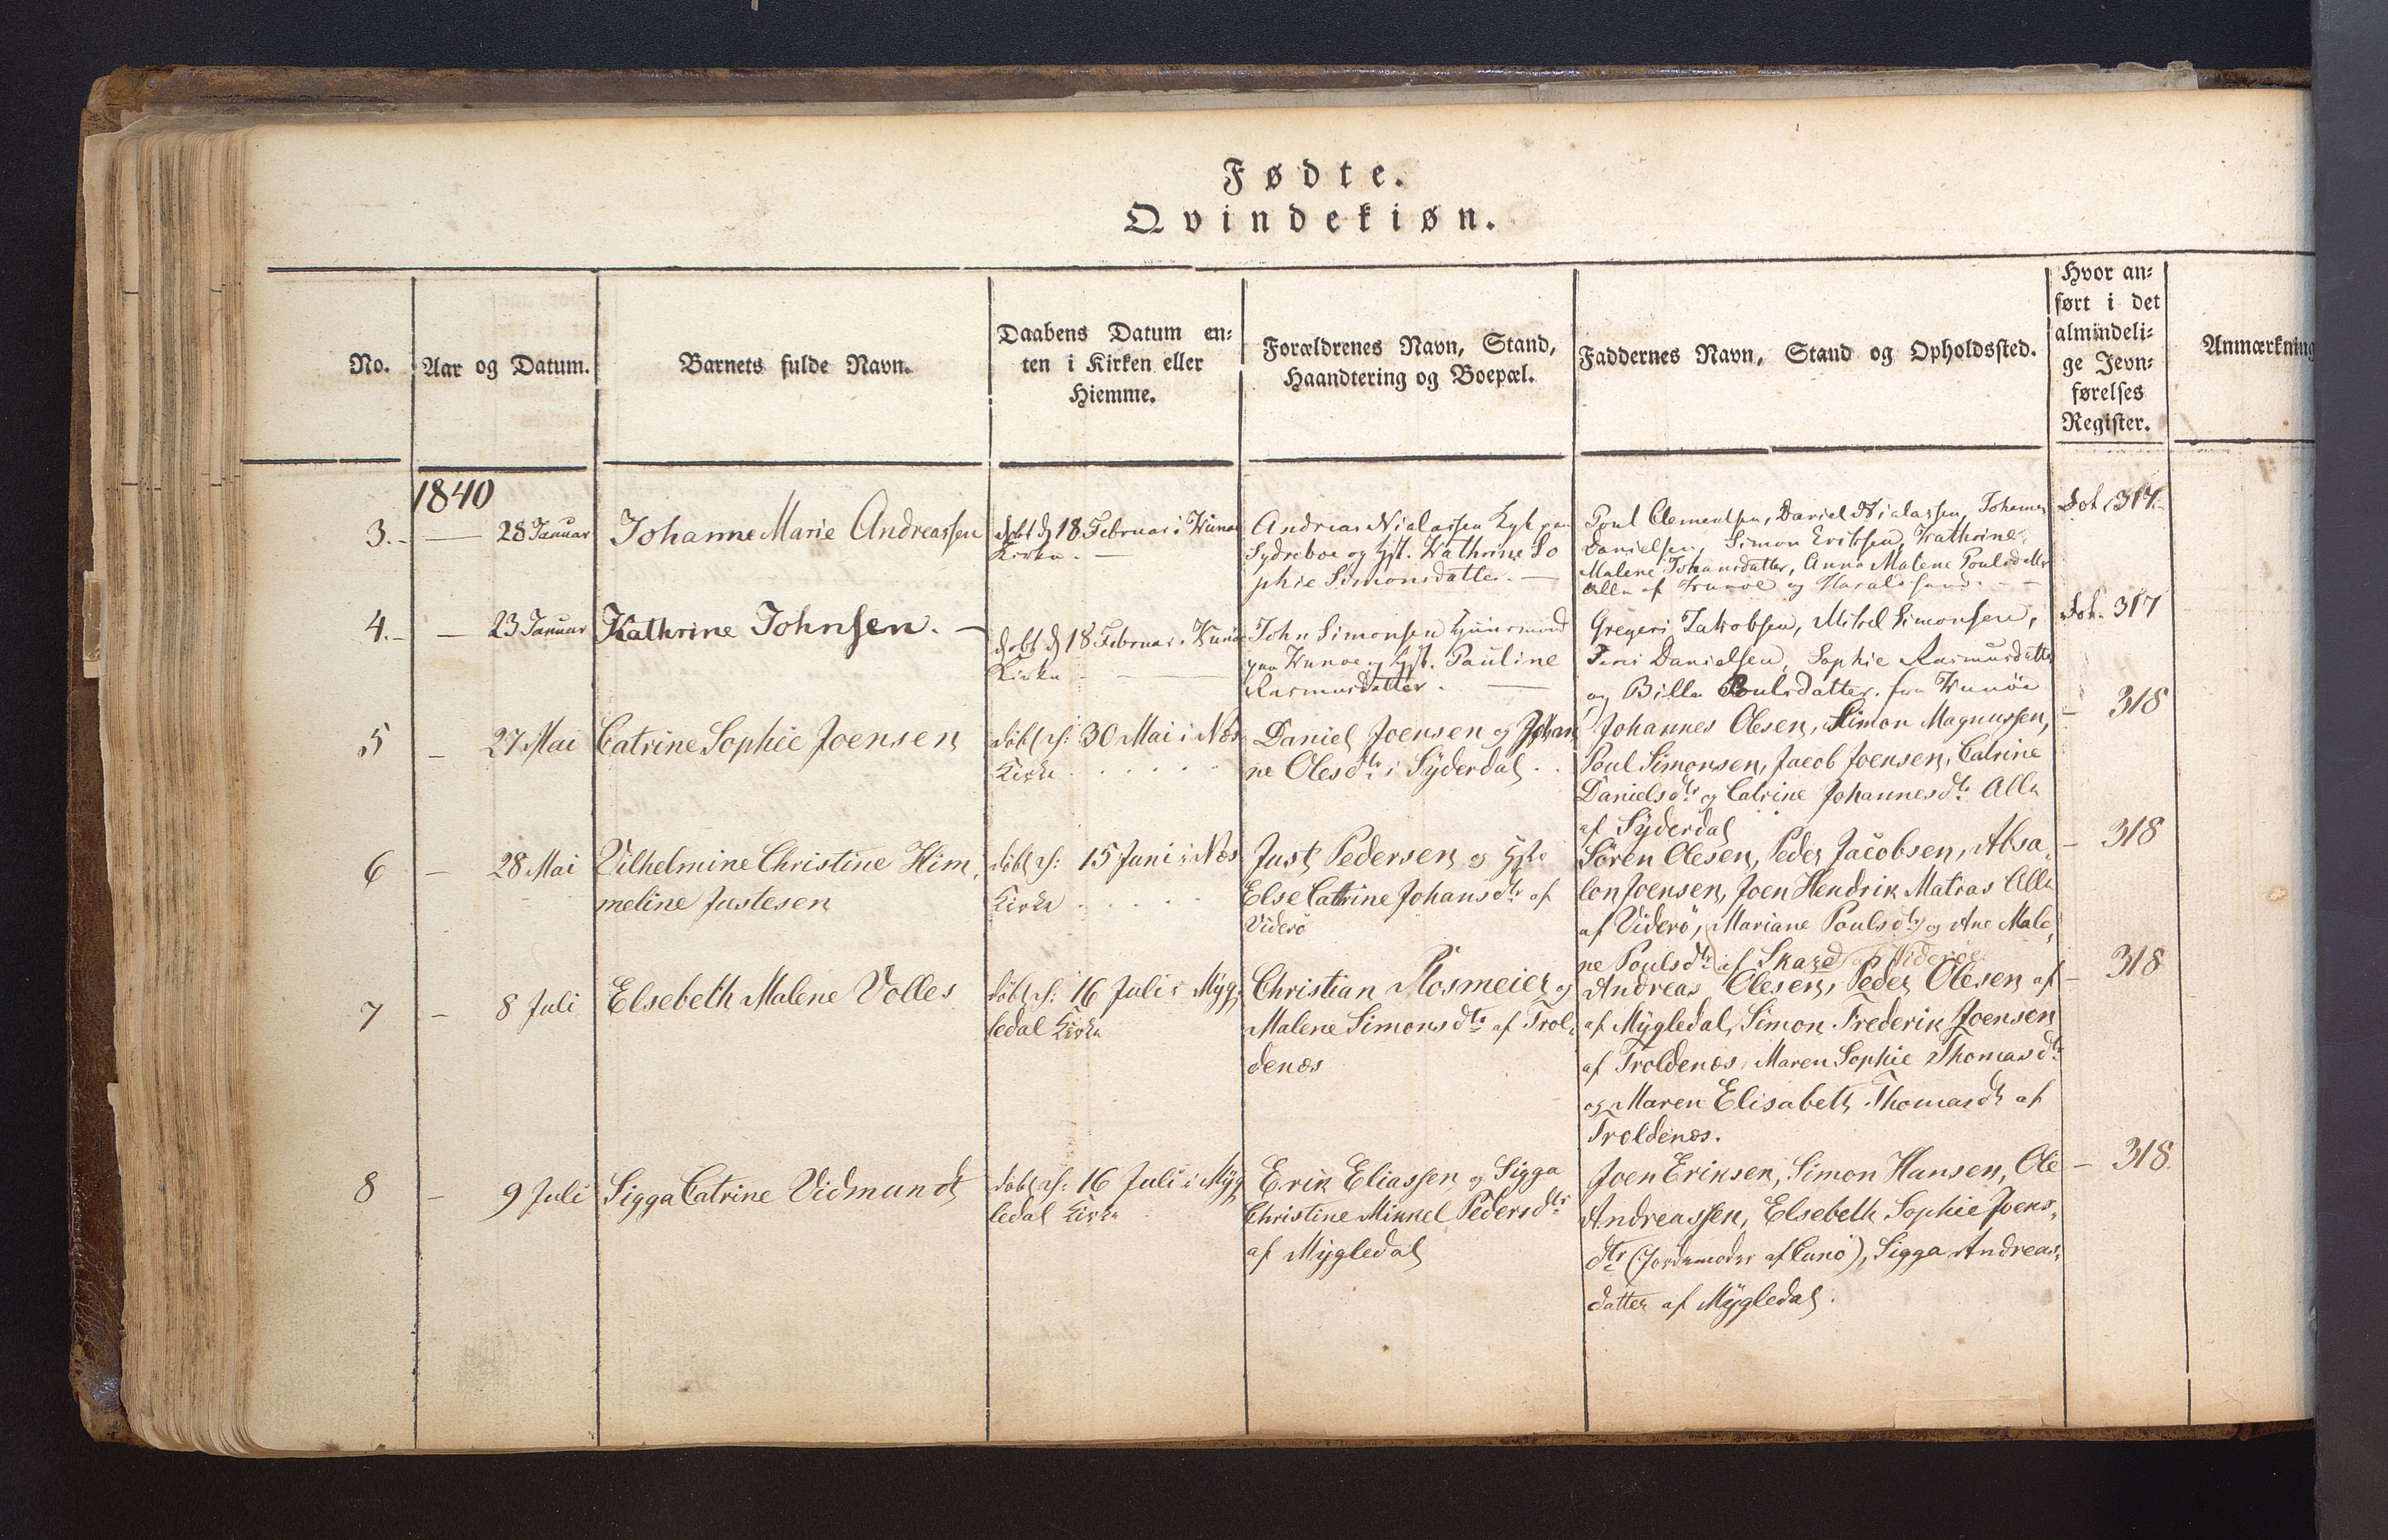 Fødte.
Qvindekiøn.
No.
Aar og Datum.
Barnets fulde Navn.
Daabens Datum en-
ten i Kirken eller
Hiemme.
Forældrenes Navn, Stand,
Haandtering og Boepæl.
Faddernes Navn, Stand og Opholdssted.
Hvor an-
ført i det
almindeli-
ge Jevn-
førelses
Register.
Anmærkning
1840
3. — 28 Januar
Johanne Marie Andreassen
døbt d 18 Februar i Kunøe
Kirke. —
Andreas Nielassen paa
Sydreboe og Hst. Kathrine So
phie Simonsdatter. —
Poul Clementsen, Daniel Nialassen, Johannes
Danielsen, Simon Eriksen, Kathrine
Malene Johansdatter, Anna Malene Poulsdatter
Alle af Kunøe og Haraldssund. —
Fol. 317.
4. — 23 Januar
Kathrine Johnsen. —
døbt d 18 Februar i Kunøe
Kirke —
John Simonsen Huusmand
paa Kunoe og Hst. Pauline
Rasmusdatter. —
Gregers Jakobsen, Mikel Simonsen,
Jens Danielsen, Sophie Rasmusdatter
og Billa Poulsdatter. fra Kunöe
Fol. 317
5 — 27 Mai
Catrine Sophie Joensen
döbt d: 30 Mai i Næs
Kirke . . . . .
Daniel Joensen og Johan
ne Olesdtr i Syderdal . .
Johannes Olesen, Simon Magnussen,
Poul Simonsen, Jacob Joensen, Catrine
Danielsdtr og Catrine Johannesdtr Alle
af Syderdal
— 318
6 — 28 Mai
Vilhelmine Christine Him,
meline Justesen
döbt d: 15 Juni i Næs
Kirke . . . . .
Just Pedersen og Hst
Else Catrine Johansdtr af
Viderö
Sören Olesen, Peder Jacobsen, Absa,
lon Joensen, Joen Hendrik Matras Alle
af Viderö, Mariane Poulsdtr og Ane Male,
ne Poulsdtr af Skard af Videröe
— 318
7 — 8 Juli
Elsebeth Malene Volles
döbt d: 16 Juli i Myg,
ledal Kirke
Christian Mosmeier og
Malene Simonsdtr af Trol,
denæs
Andreas Olesen, Peder Olesen af
af Mygledal, Simon Frederik Joensen
af Troldenæs, Maren Sophie Thomasdtr
og Maren Elisabeth Thomasdtr af
Troldenæs.
— 318
8 — 9 Juli
Sigga Catrine Vidmundt
döbt d: 16 Juli i Myg
ledal Kirke
Erik Eliassen og Sigga
Christine Mikkel Pedersdtr
af Mygledal
Joen Eriksen, Simon Hansen, Ole
Andreassen, Elsebeth Sophie Joens,
dtr (Jordemoder af Cunö), Sigga Andreas,
datter af Mygledal.
— 318.